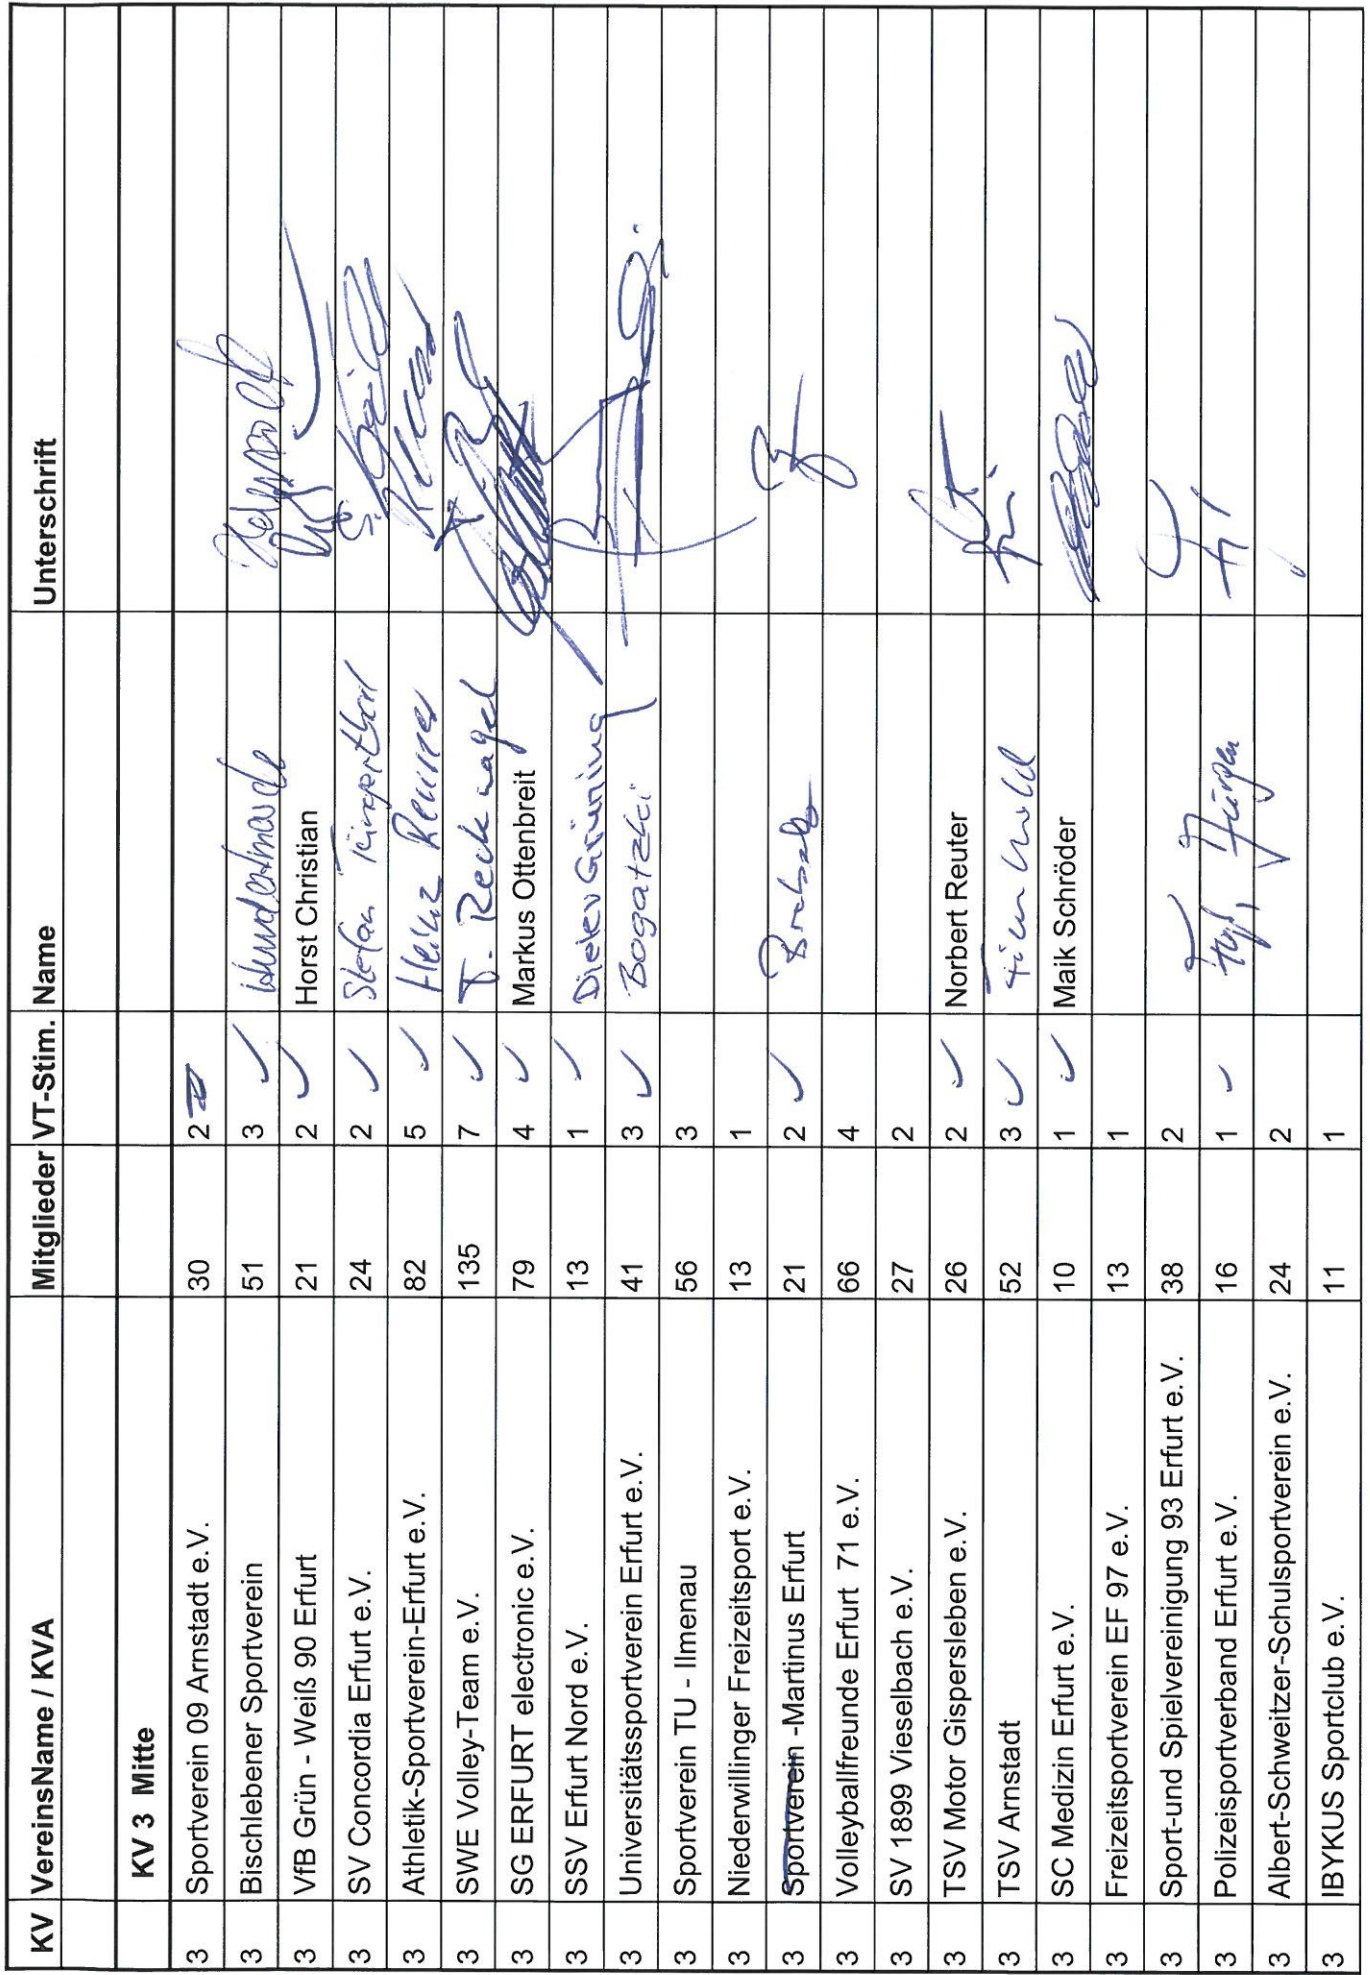 KV VereinsName / KVA Mitglieder VT-Stim. Name Unterschrift
KV 3 Mitte
3 Sportverein 09 Arnstadt e.V. 30 2
3 Bischlebener Sportverein 51 3 ✓
3 VfB Grün - Weiß 90 Erfurt 21 2 ✓ Horst Christian
3 SV Concordia Erfurt e.V. 24 2 ✓ Stefan
3 Athletik-Sportverein-Erfurt e.V. 82 5 ✓ Heinz
3 SWE Volley-Team e.V. 135 7 ✓ T. Recknagel
3 SG ERFURT electronic e.V. 79 4 ✓ Markus Ottenbreit
3 SSV Erfurt Nord e.V. 13 1 ✓ Grüning
3 Universitätssportverein Erfurt e.V. 41 3 ✓ Bogatzki
3 Sportverein TU - Ilmenau 56 3
3 Niederwillinger Freizeitsport e.V. 13 1
3 Sportverein -Martinus Erfurt 21 2 ✓
3 Volleyballfreunde Erfurt 71 e.V. 66 4
3 SV 1899 Vieselbach e.V. 27 2
3 TSV Motor Gispersleben e.V. 26 2 ✓ Norbert Reuter
3 TSV Arnstadt 52 3 ✓
3 SC Medizin Erfurt e.V. 10 1 ✓ Maik Schröder
3 Freizeitsportverein EF 97 e.V. 13 1
3 Sport-und Spielvereinigung 93 Erfurt e.V. 38 2
3 Polizeisportverband Erfurt e.V. 16 1 ✓ Jürgen
3 Albert-Schweitzer-Schulsportverein e.V. 24 2
3 IBYKUS Sportclub e.V. 11 1